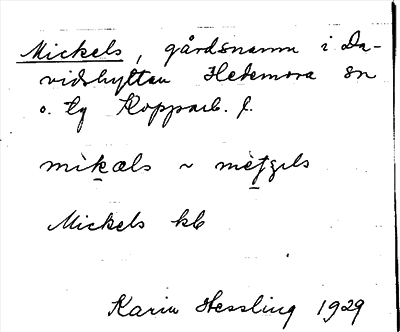 Mickels, gårdsnamn i Da-
vidshyttan Hedemora sn
o. tg Kopparb. l.
mikæls ~ meƒgɛls
Mickels kb
Karin Hessling 1929